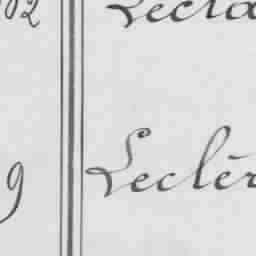 02 Lecla
9 Leclèr